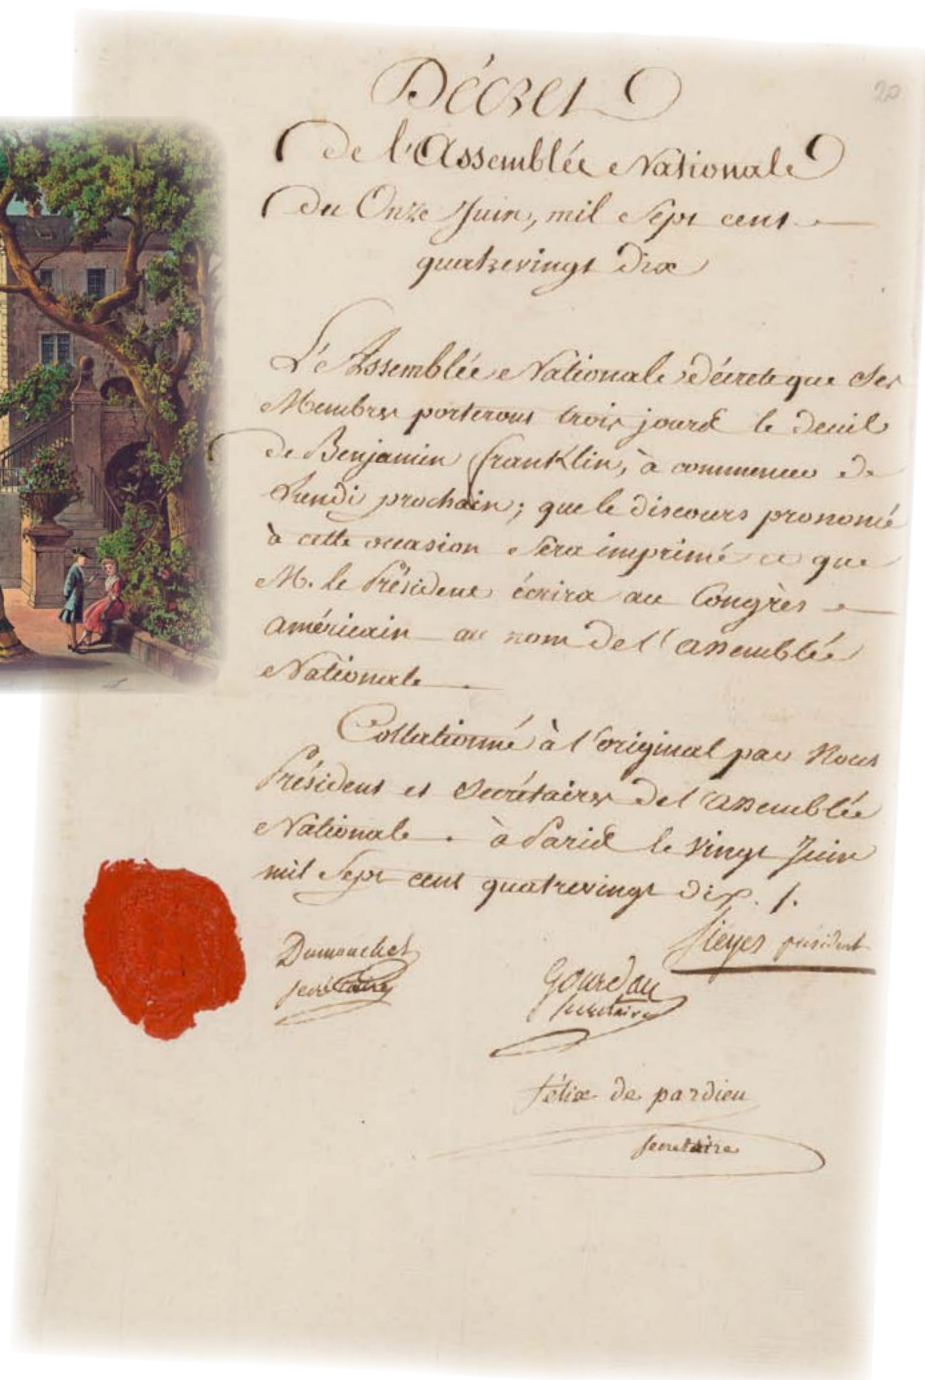 20
Décret
de l'Assemblée Nationale
du Onze Juin, mil Sept cent
quatrevingt dix
L'Assemblée Nationale décrete que Ses
Membres porteront trois jours le deuil
de Benjamin franklin, à commencer de
Lundi prochain; que le discours prononcé
à cette occasion Sera imprimé et que
M. le Président écrira au Congrès
américain au nom de l'assemblée
Nationale
Collationné à l'original par Nous
Président et Secrétaires de l'assemblée
Nationale. à Paris le vingt Juin
mil Sept cent quatrevingt dix. /.
Sieyes président
Dumouchet
secretaire
Gourdan
secretaire
félix de pardieu
secretaire